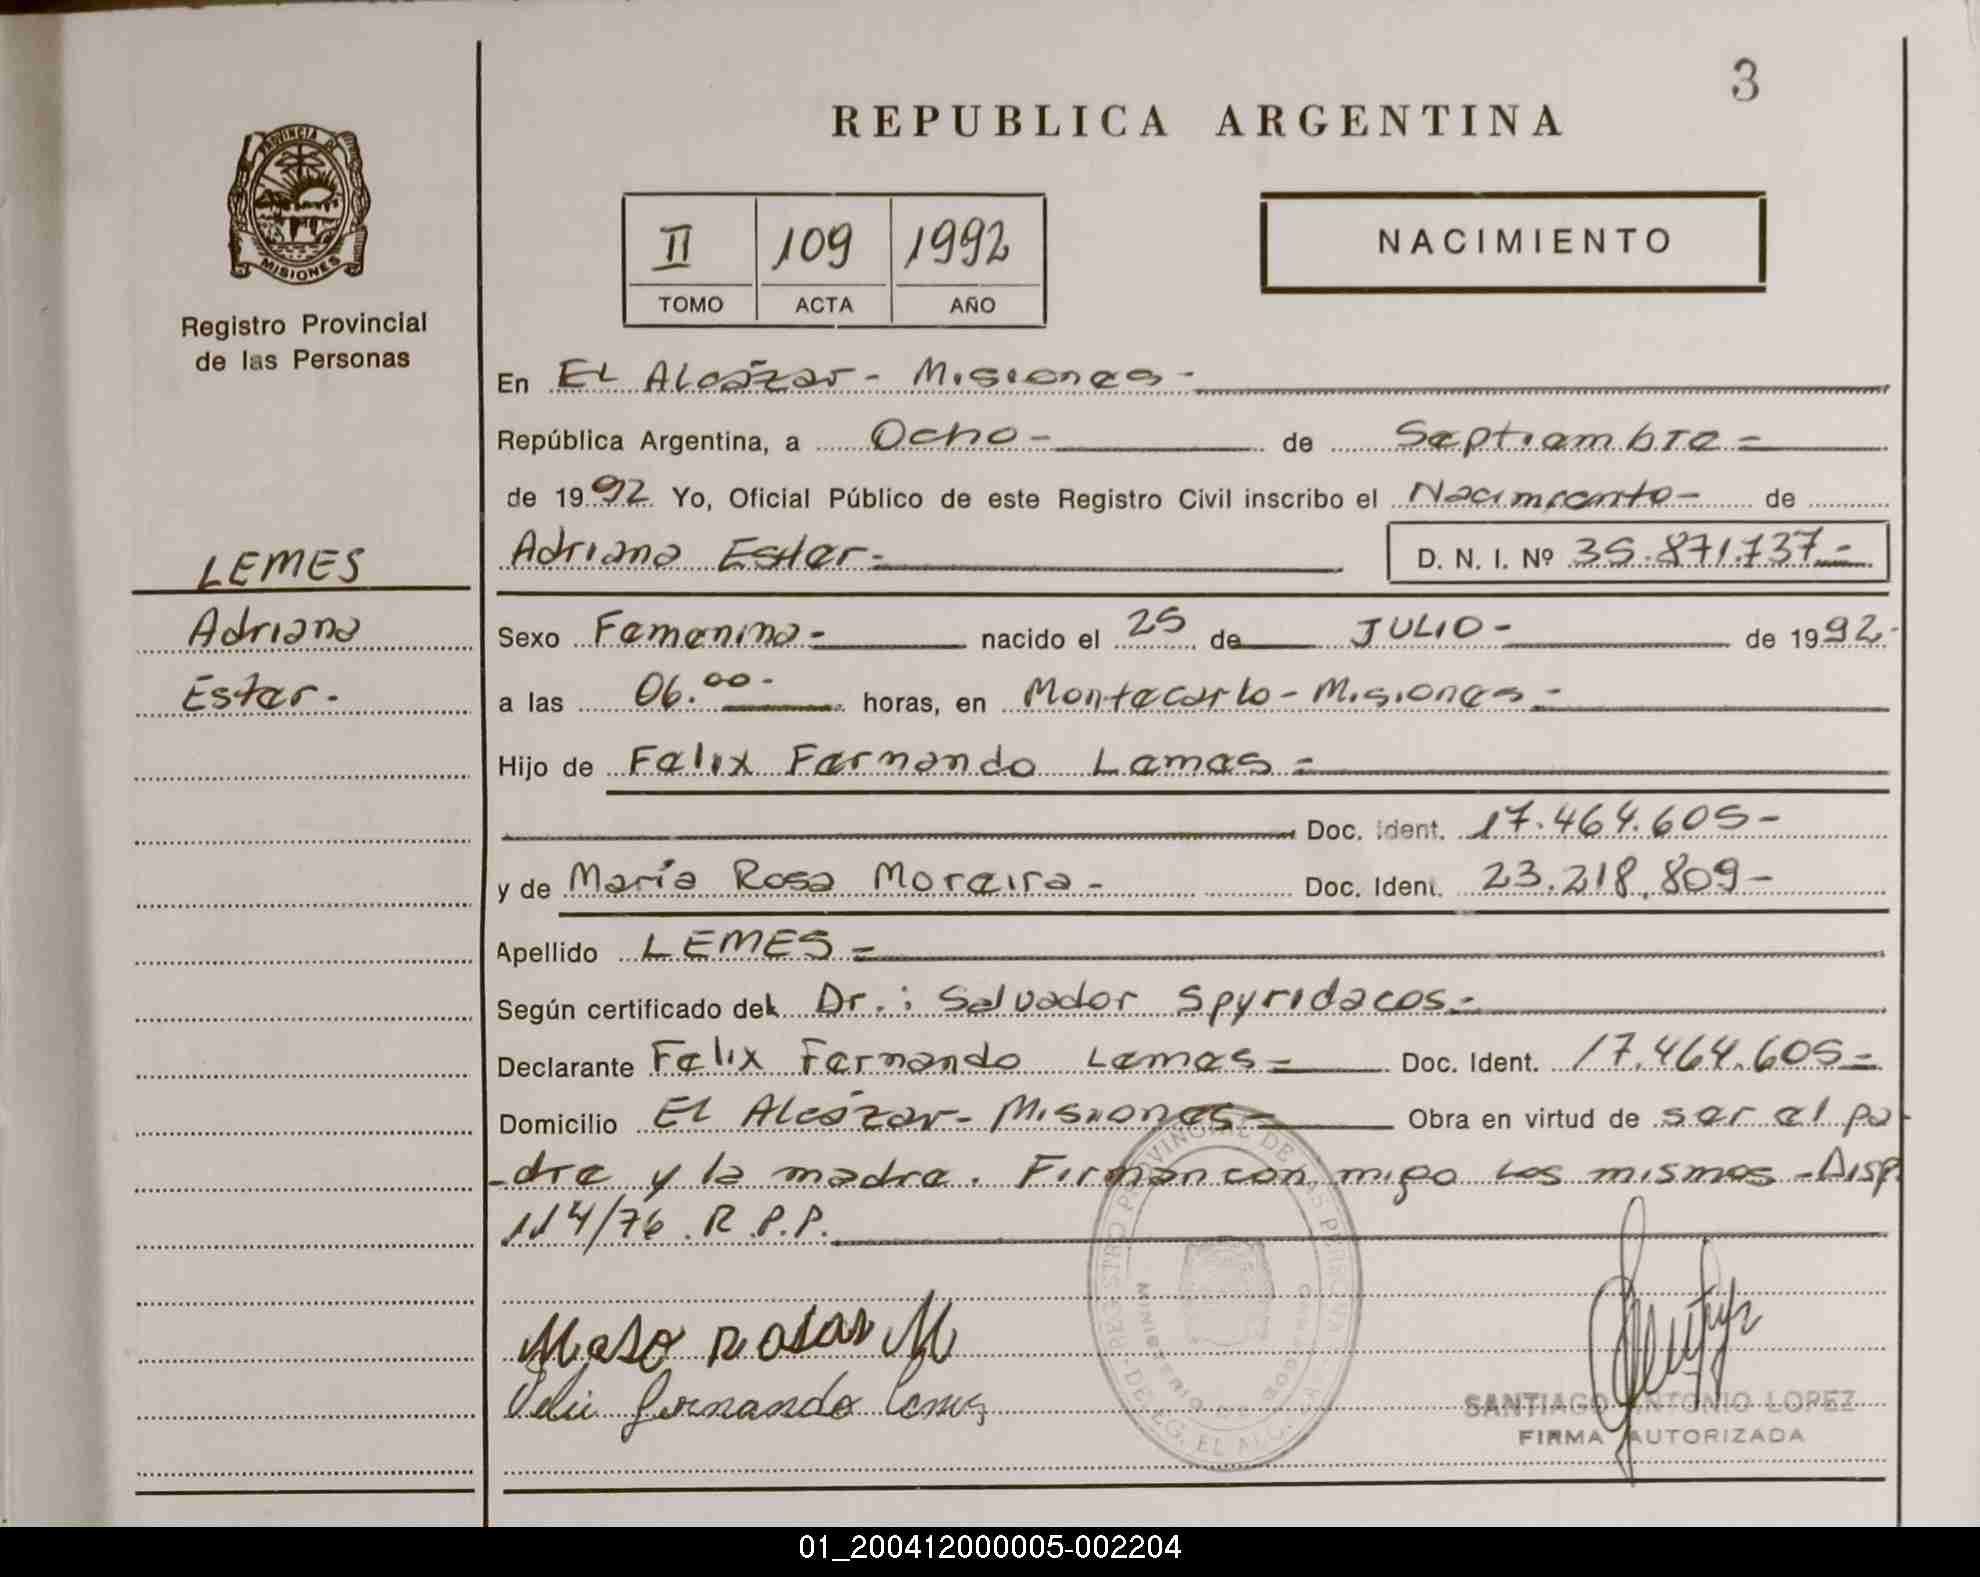 3
REPUBLICA ARGENTINA
PROVINCIA DE
MISIONES
Registro Provincial
de las Personas
II 109 1992
TOMO ACTA AÑO
NACIMIENTO
LEMES
Adriana
Ester.-
En El Alcázar - Misiones -
República Argentina, a Ocho - de Septiembre =
de 1992 Yo, Oficial Público de este Registro Civil inscribo el Nacimiento - de
Adriana Ester - D. N. I. Nº 35.871.737.-
Sexo Femenino - nacido el 25 de JULIO - de 1992-
a las 06.00- horas, en Montecarlo - Misiones -
Hijo de Felix Fernando Lemes =
Doc. Ident. 17.464.605-
y de María Rosa Moreira - Doc. Ident. 23.218.809-
Apellido LEMES =
Según certificado del Dr.: Salvador Spyridacos.-
Declarante Felix Fernando Lemes = Doc. Ident. 17.464.605=
Domicilio El Alcázar - Misiones = Obra en virtud de ser el pa-
-dre y la madre. Firman conmigo los mismos - Disp.
114/76 R.P.P.
Fernando Lemes
REGISTRO PROVINCIAL DE LAS PERSONAS
MINISTERIO DE GOBIERNO
DELEG. EL ALCAZAR
SANTIAGO ANTONIO LOPEZ
FIRMA AUTORIZADA
01_200412000005-002204